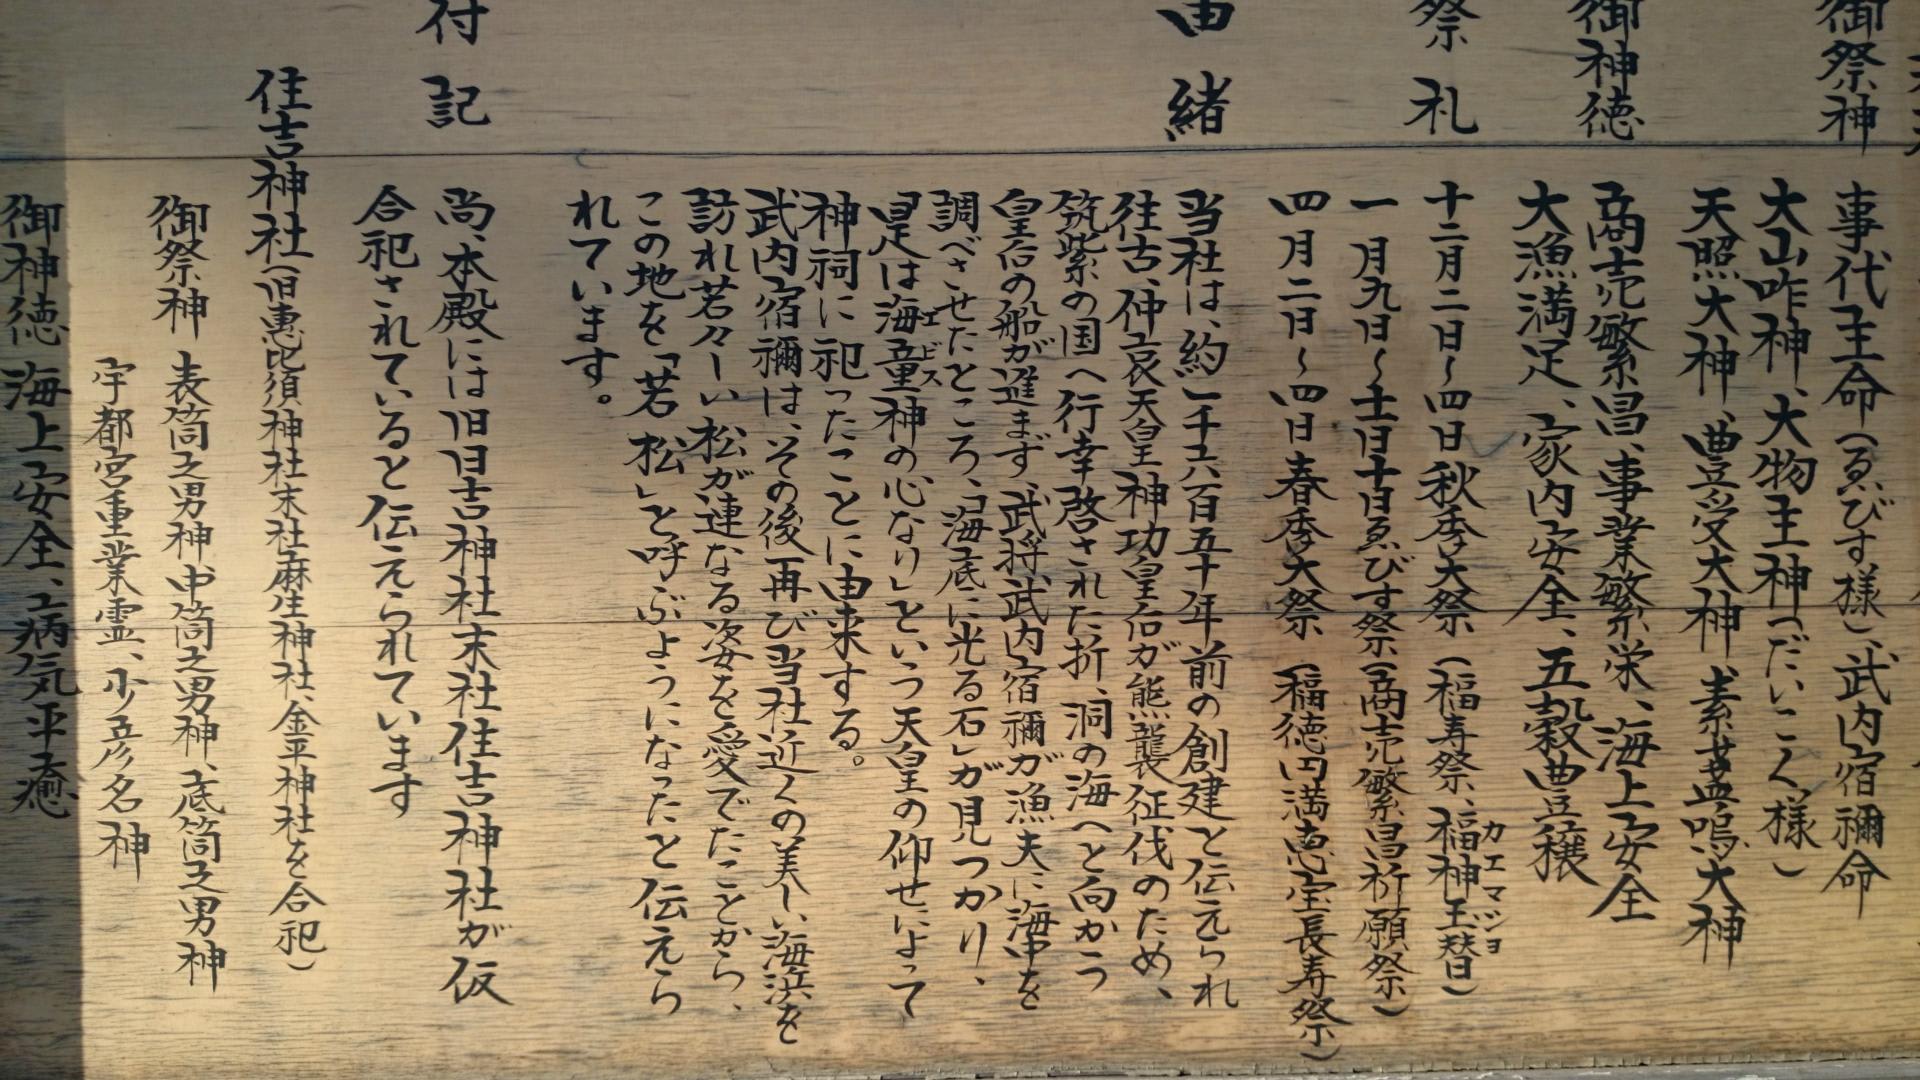 御祭神
事代主命(ゑびす様)、武内宿禰命
大山咋神、大物主神(だいこく様)
天照大神、豊受大神、素盞嗚大神
御神徳
商売繁昌、事業繁栄、海上安全
大漁満足、家内安全、五穀豊穣
祭礼
十二月二日〜四日秋季大祭(福寿祭、福神玉替)
カエマジョ
一月九日〜十一日十日ゑびす祭(商売繁昌祈願祭)
四月二日〜四日春季大祭(福徳円満恵宝長寿祭)
由緒
当社は、約一千六百五十年前の創建と伝えられ
往古、仲哀天皇、神功皇后が熊襲征伐のため、
筑紫の国へ行幸啓された折、洞の海へと向かう
皇后の船が進まず、武将武内宿禰が漁夫に海中を
調べさせたところ、「海底に光る石」が見つかり、
「是は海童神の心なり」という天皇の仰せによって
エビス
神祠に祀ったことに由来する。
武内宿禰は、その後再び当社近くの美しい海浜を
訪れ若々しい松が連なる姿を愛でたことから、
この地を「若松」と呼ぶようになったと伝えら
れています。
付記
尚、本殿には旧日吉神社末社住吉神社が仮
合祀されていると伝えられています
住吉神社(旧恵比須神社末社麻生神社、金平神社を合祀)
御祭神 表筒之男神、中筒之男神、底筒之男神
宇都宮重業霊、少彦名神
御神徳 海上安全、病気平癒